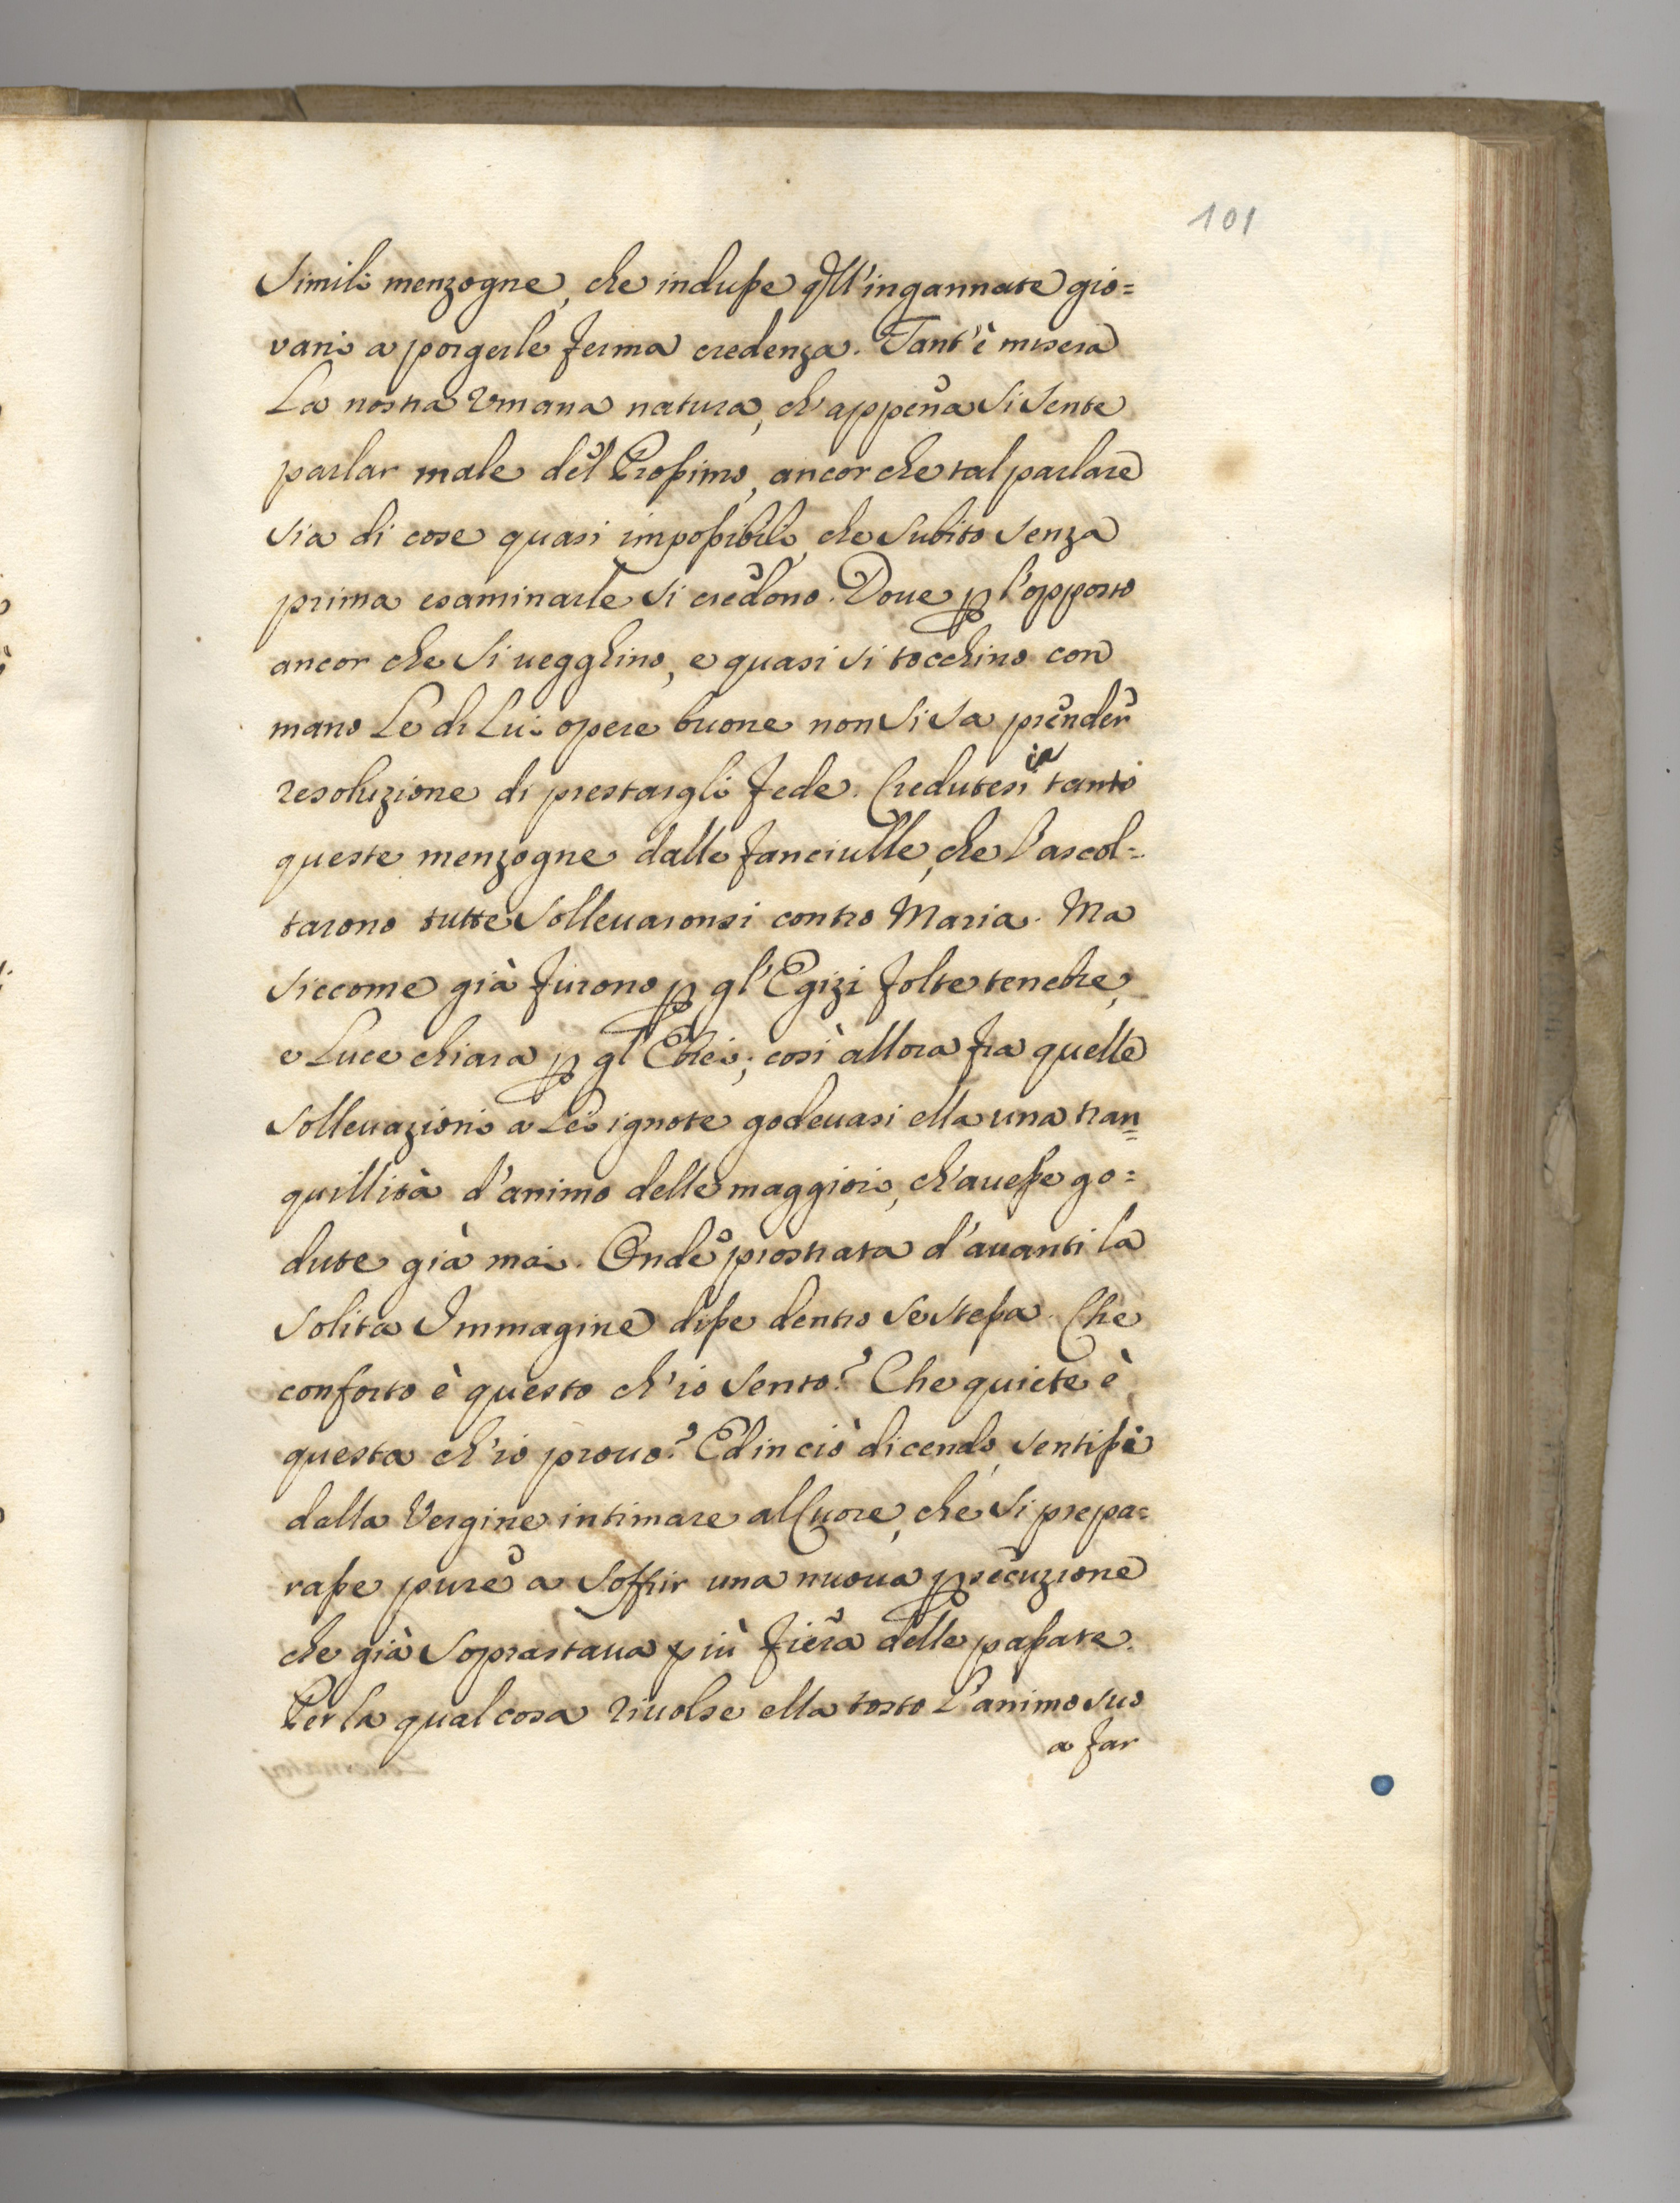 101
Simili menzogne, che indusse qll'ingannate gio=
vani a porgerle ferma credenza. Tant'è misera
La nostra Vmana natura, ch'appena si sente
parlar male del Prossimo, ancor che tal parlare
sia di cose quasi impossibili, che subito senza
prima esaminarle si credono. Doue p l'opposto
ancor che si uegghino, e quasi si tocchino con
mano Le di Lui opere buone non si sa prender
resoluzione di prestargli fede. Credutesi in tanto
queste menzogne dalle fanciulle, che l'ascol=
tarono tutte solleuaronsi contro Maria. Ma
siccome già furono p gl'Egizi folte tenebre,
e Luce chiara p gl'Ebrei; così allora fra quelle
solleuazioni a Lei ignote godeuasi ella una tran=
quillità d'animo delle maggiori, ch'auesse go=
dute già mai. Onde prostrata d'auanti la
solita Immagine disse dentro se stessa. Che
conforto è questo ch'io sento? Che quiete è
questa ch'io prouo? Ed in ciò dicendo, sentissi
dalla Vergine intimare al Cuore, che si prepa=
rasse pure a soffrir una nuoua psecuzione
che già soprastaua più fiera delle passate.
Per la qual cosa riuolse ella tosto L'animo suo
a far